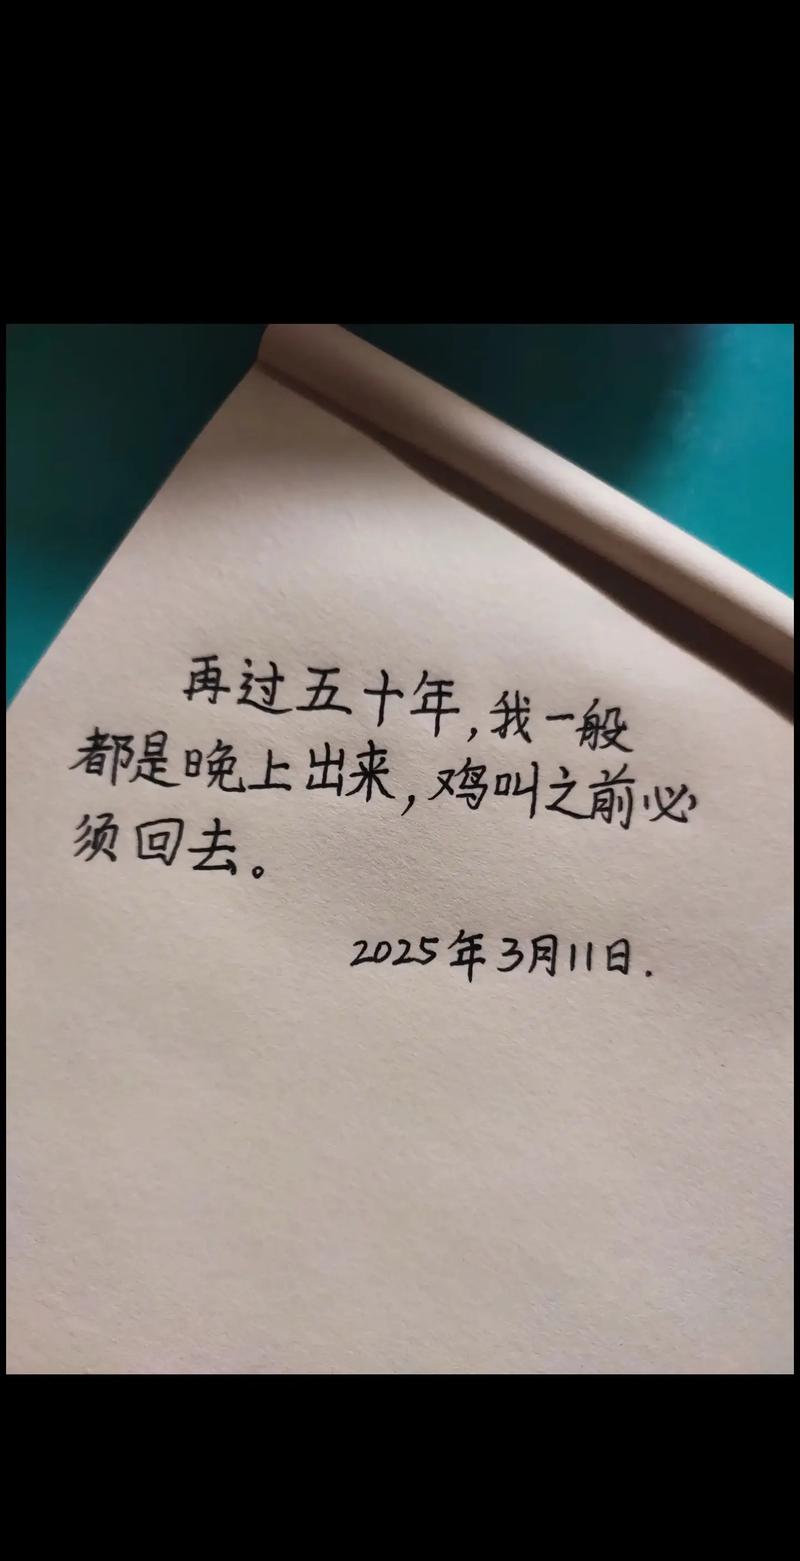 再过五十年,我一般
都是晚上出来,鸡叫之前必
须回去。
2025年3月11日.